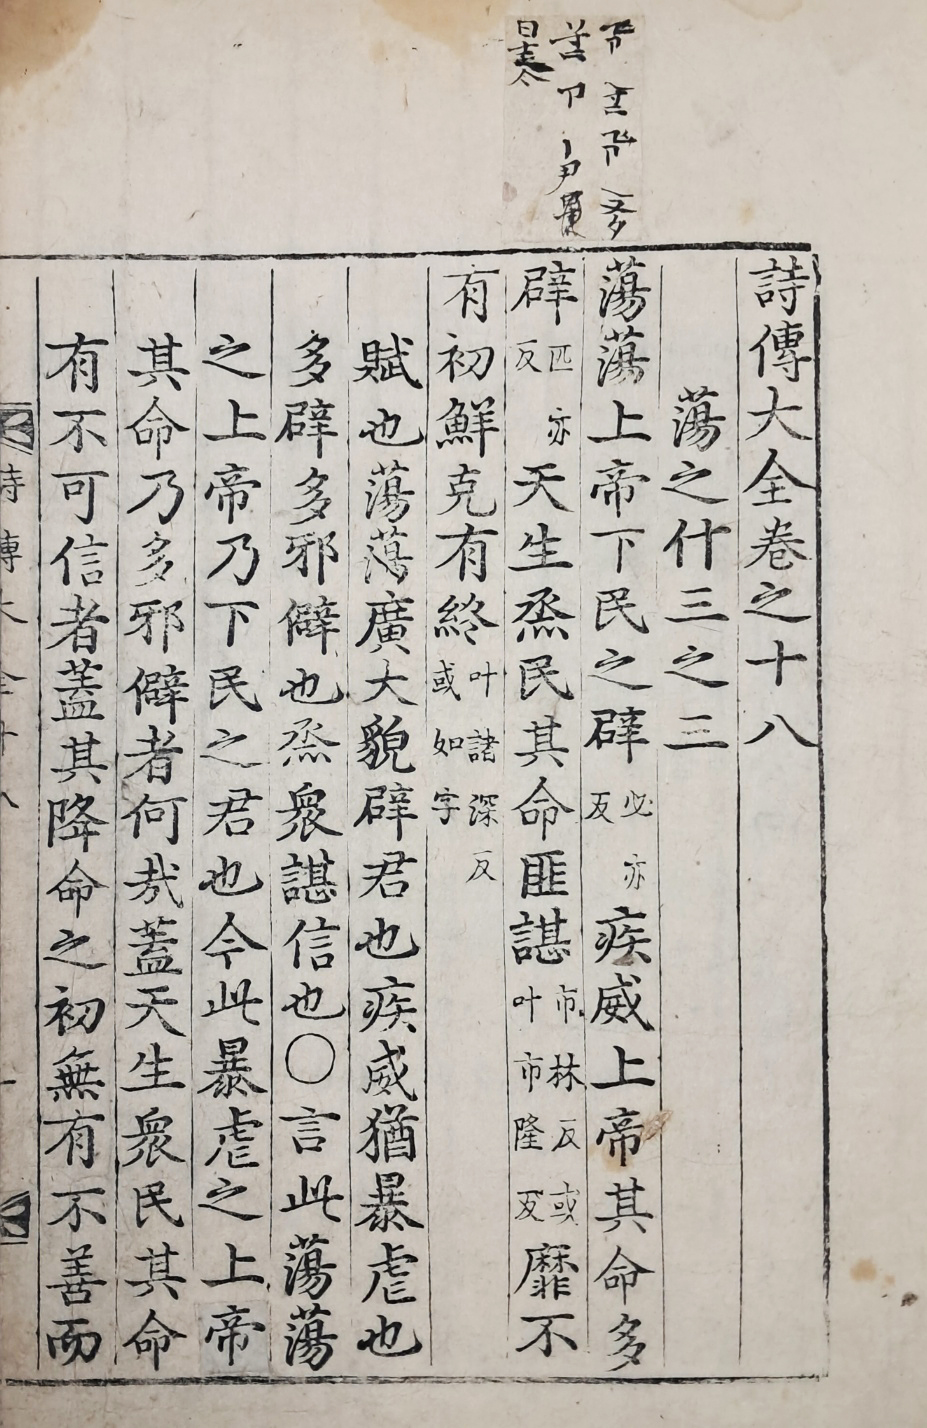 詩傳大全卷之十八
蕩之什三之三
蕩蕩上帝下民之辟必亦反疾威上帝其命多
辟匹亦反天生烝民其命匪諶市林反或叶市隆反靡不
有初鮮克有終叶諸深反或如字
賦也蕩蕩廣大貌辟君也疾威猶暴虐也
多辟多邪僻也烝衆諶信也○言此蕩蕩
之上帝乃下民之君也今此暴虐之上帝
其命乃多邪僻者何哉蓋天生衆民其命
有不可信者蓋其降命之初無有不善而